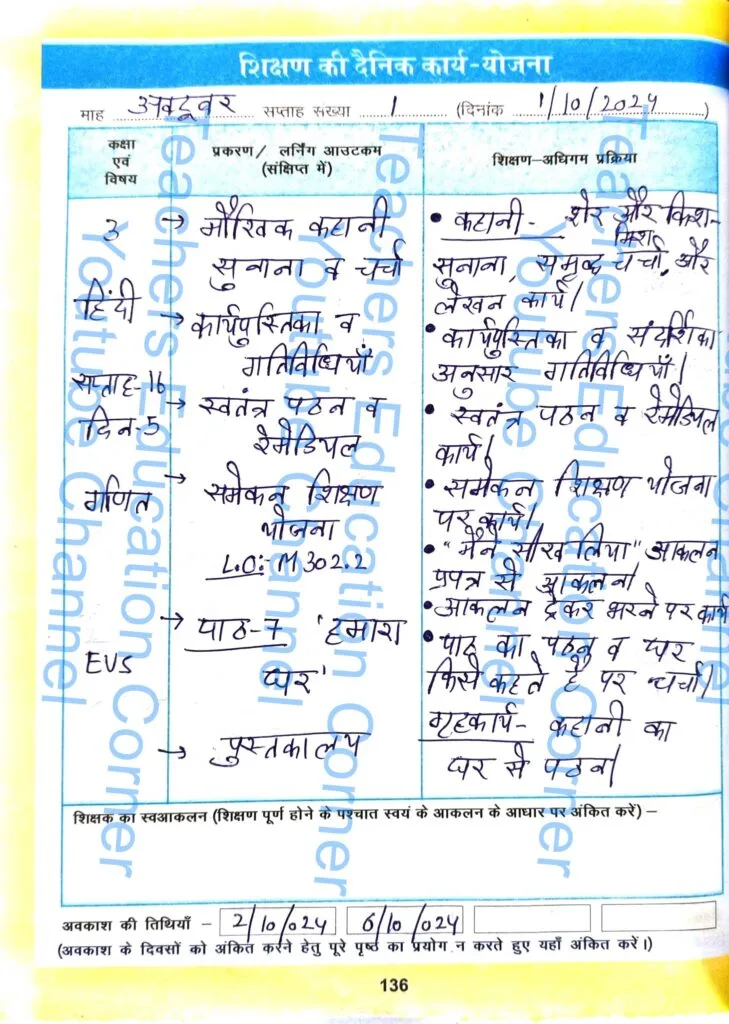 शिक्षण की दैनिक कार्य-योजना
माह अक्टूवर सप्ताह संख्या 1 (दिनांक 1/10/2024)
कक्षा एवं विषय
प्रकरण/ लर्निंग आउटकम (संक्षिप्त में)
शिक्षण-अधिगम प्रक्रिया
3
हिंदी
सप्ताह-16
दिन-5
गणित
EVS
→ मौखिक कहानी
सुनाना व चर्चा
→ कार्यपुस्तिका व
गतिविधियाँ
→ स्वतंत्र पठन व
रेमेडियल
→ समेकन शिक्षण
योजना
L.O:- M302.2
→ पाठ-7 'हमारा
घर'
→ पुस्तकालय
• कहानी- शेर और किश-
मिश
सुनाना, समृद्ध चर्चा, और
लेखन कार्य।
• कार्यपुस्तिका व संदर्शिका
अनुसार गतिविधियाँ।
• स्वतंत्र पठन व रेमेडियल
कार्य।
• समेकन शिक्षण योजना
पर कार्य।
• "मैंने सीख लिया" आकलन
प्रपत्र से आकलन।
• आकलन ट्रेकर भरने पर कार्य
• पाठ का पठन व घर
किसे कहते हैं पर चर्चा।
गृहकार्य- कहानी का
घर से पठन।
शिक्षक का स्वआकलन (शिक्षण पूर्ण होने के पश्चात स्वयं के आकलन के आधार पर अंकित करें) –
अवकाश की तिथियाँ – 2/10/024 6/10/024
(अवकाश के दिवसों को अंकित करने हेतु पूरे पृष्ठ का प्रयोग न करते हुए यहाँ अंकित करें।)
136
Teachers Education Corner
Youtube Channel
Teachers Education Corner
Youtube Channel
Teachers Education Corner
Youtube Channel